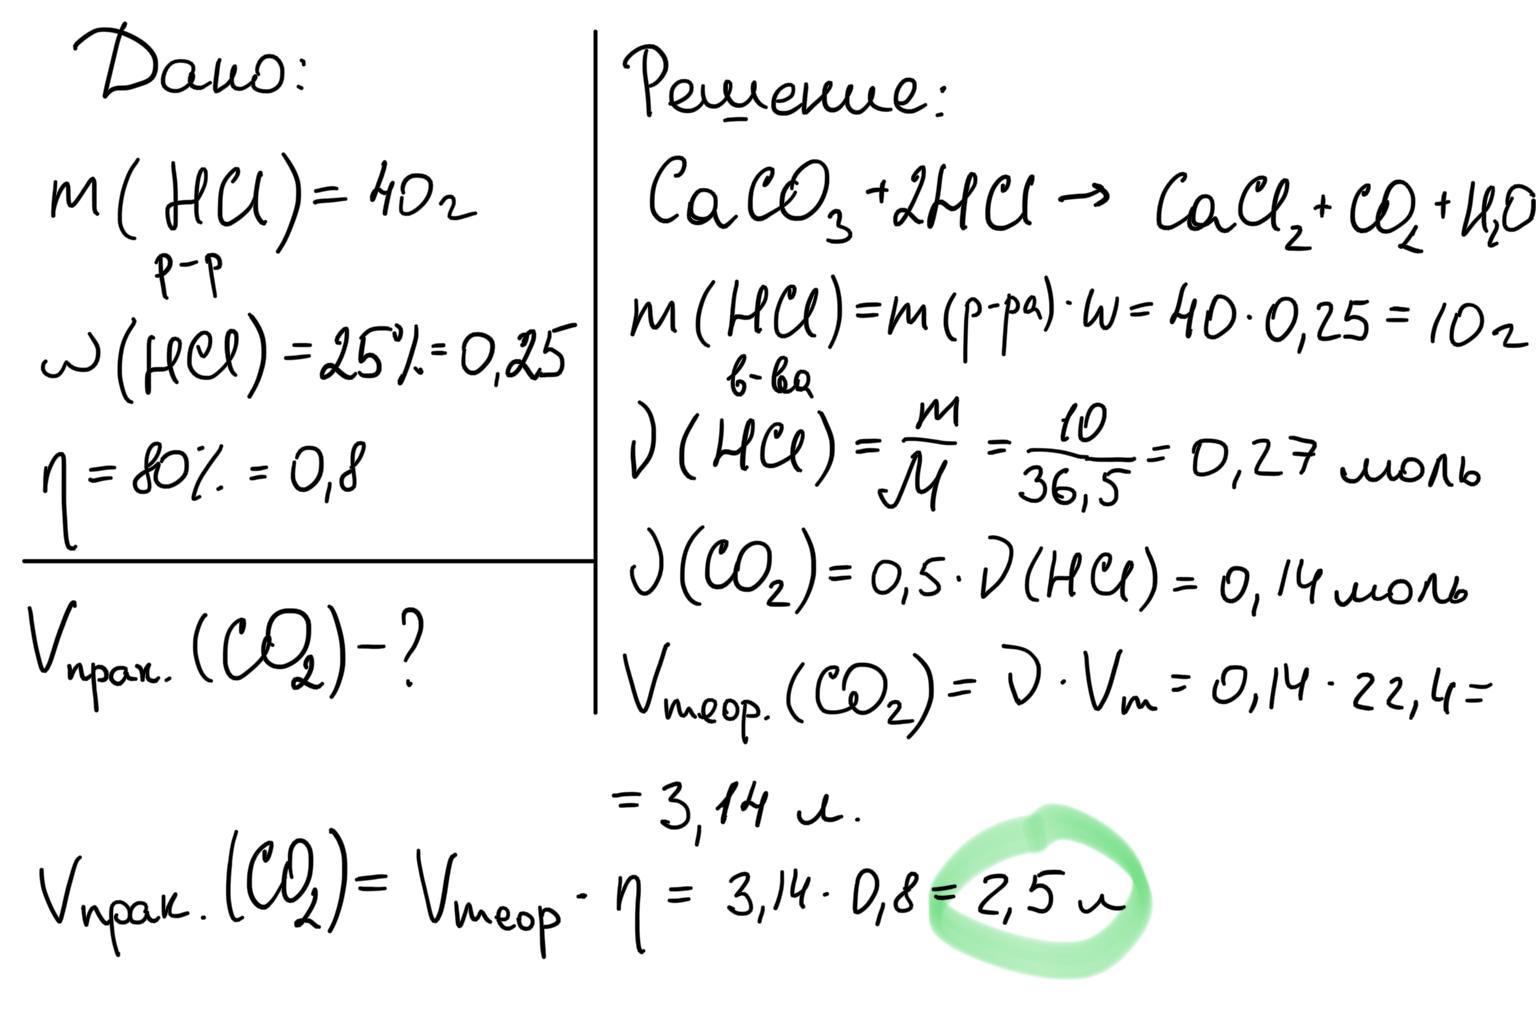 Дано:
m(HCl) = 40г
р-р
ω(HCl) = 25% = 0,25
η = 80% = 0,8
Vпрак. (CO₂) - ?
Решение:
CaCO₃ + 2HCl → CaCl₂ + CO₂ + H₂O
m(HCl) = m(р-ра) · ω = 40 · 0,25 = 10г
в-ва
ν(HCl) = m/M = 10/36,5 = 0,27 моль
ν(CO₂) = 0,5 · ν(HCl) = 0,14 моль
Vтеор. (CO₂) = ν · Vm = 0,14 · 22,4 =
= 3,14 л.
Vпрак. (CO₂) = Vтеор · η = 3,14 · 0,8 = 2,5 л